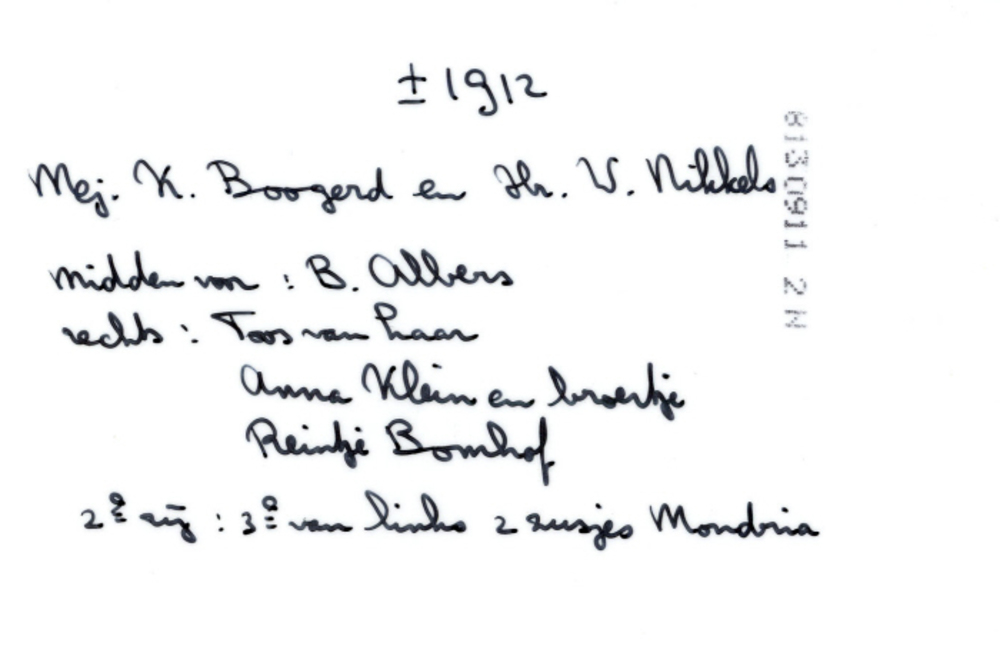 ± 1912
Mej. K. Boogerd en Hr. W. Nikkels
midden voor : B. Albers
rechts : Toos van Laar
Anna Klein en broertje
Reintje Bomhof
2e rij : 3e van links 2 zusjes Mondria